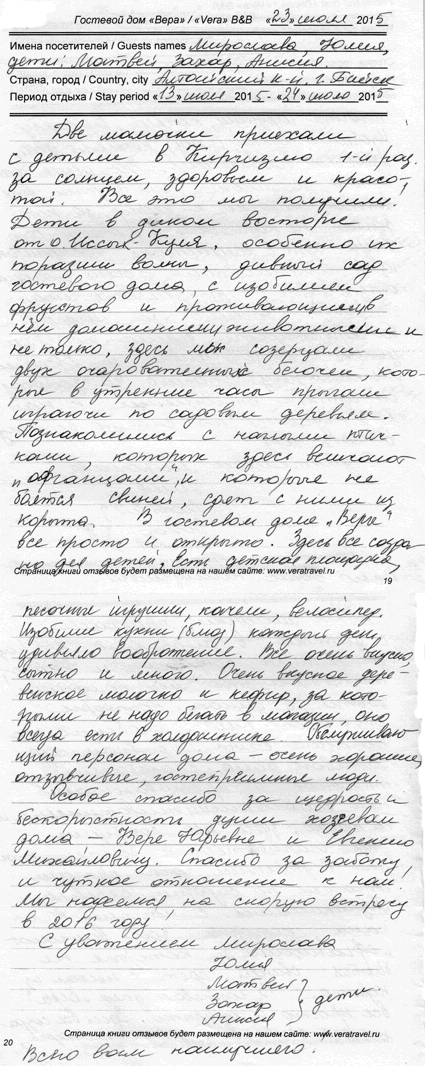 Гостевой дом «Вера» / «Vera» B&B «23» июля 2015
Имена посетителей / Guests names Мирослава, Юлия,
дети: Матвей, Захар, Анисия.
Страна, город / Country, city Алтайский к-й, г. Бийск
Период отдыха / Stay period «13» июля 2015 - «24» июля 2015
Две мамочки приехали
с детьми в Киргизию 1-й раз,
за солнцем, здоровьем и красо-
той. Все это мы получили!
Дети в диком восторге
от о. Иссык-Куля, особенно их
поразили волны, дивный сад
гостевого дома, с изобилием
фруктов и проживающими в
нём домашними животными и
не только, здесь мы созерцали
двух очаровательных белочек, кото-
рые в утренние часы прыгали
играючи по садовым деревьям.
Познакомились с наглыми птич-
ками, которых здесь величают
"афганцами", и которые не
боятся свиней, едят с ними из
корыта. В гостевом доме "Вера"
все просто и открыто. Здесь все созда-
но для детей. Есть детская площадка,
Страница книги отзывов будет размещена на нашем сайте: www.veratravel.ru
19
песочные игрушки, качели, велосипед.
Изобилие кухни (блюд) каждый день,
удивляло воображение. Все очень вкусно,
сытно и много. Очень вкусное дере-
венское молочко и кефир, за кото-
рыми не надо бегать в магазин, оно
всегда есть в холодильнике. Обслуживаю-
щий персонал дома – очень хорошие,
отзывчивые, гостеприимные люди.
Особое спасибо за щедрость и
бескорыстность души хозяевам
дома – Вере Юрьевне и Евгению
Михайловичу. Спасибо за заботу
и чуткое отношение к нам!
Мы надеемся на скорую встречу
в 2016 году!
С уважением Мирослава
Юлия
Матвей
Захар } дети.
Анисия
Страница книги отзывов будет размещена на нашем сайте: www.veratravel.ru
20
Всего вам наилучшего.